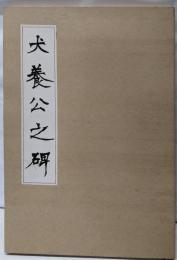 犬養公之碑